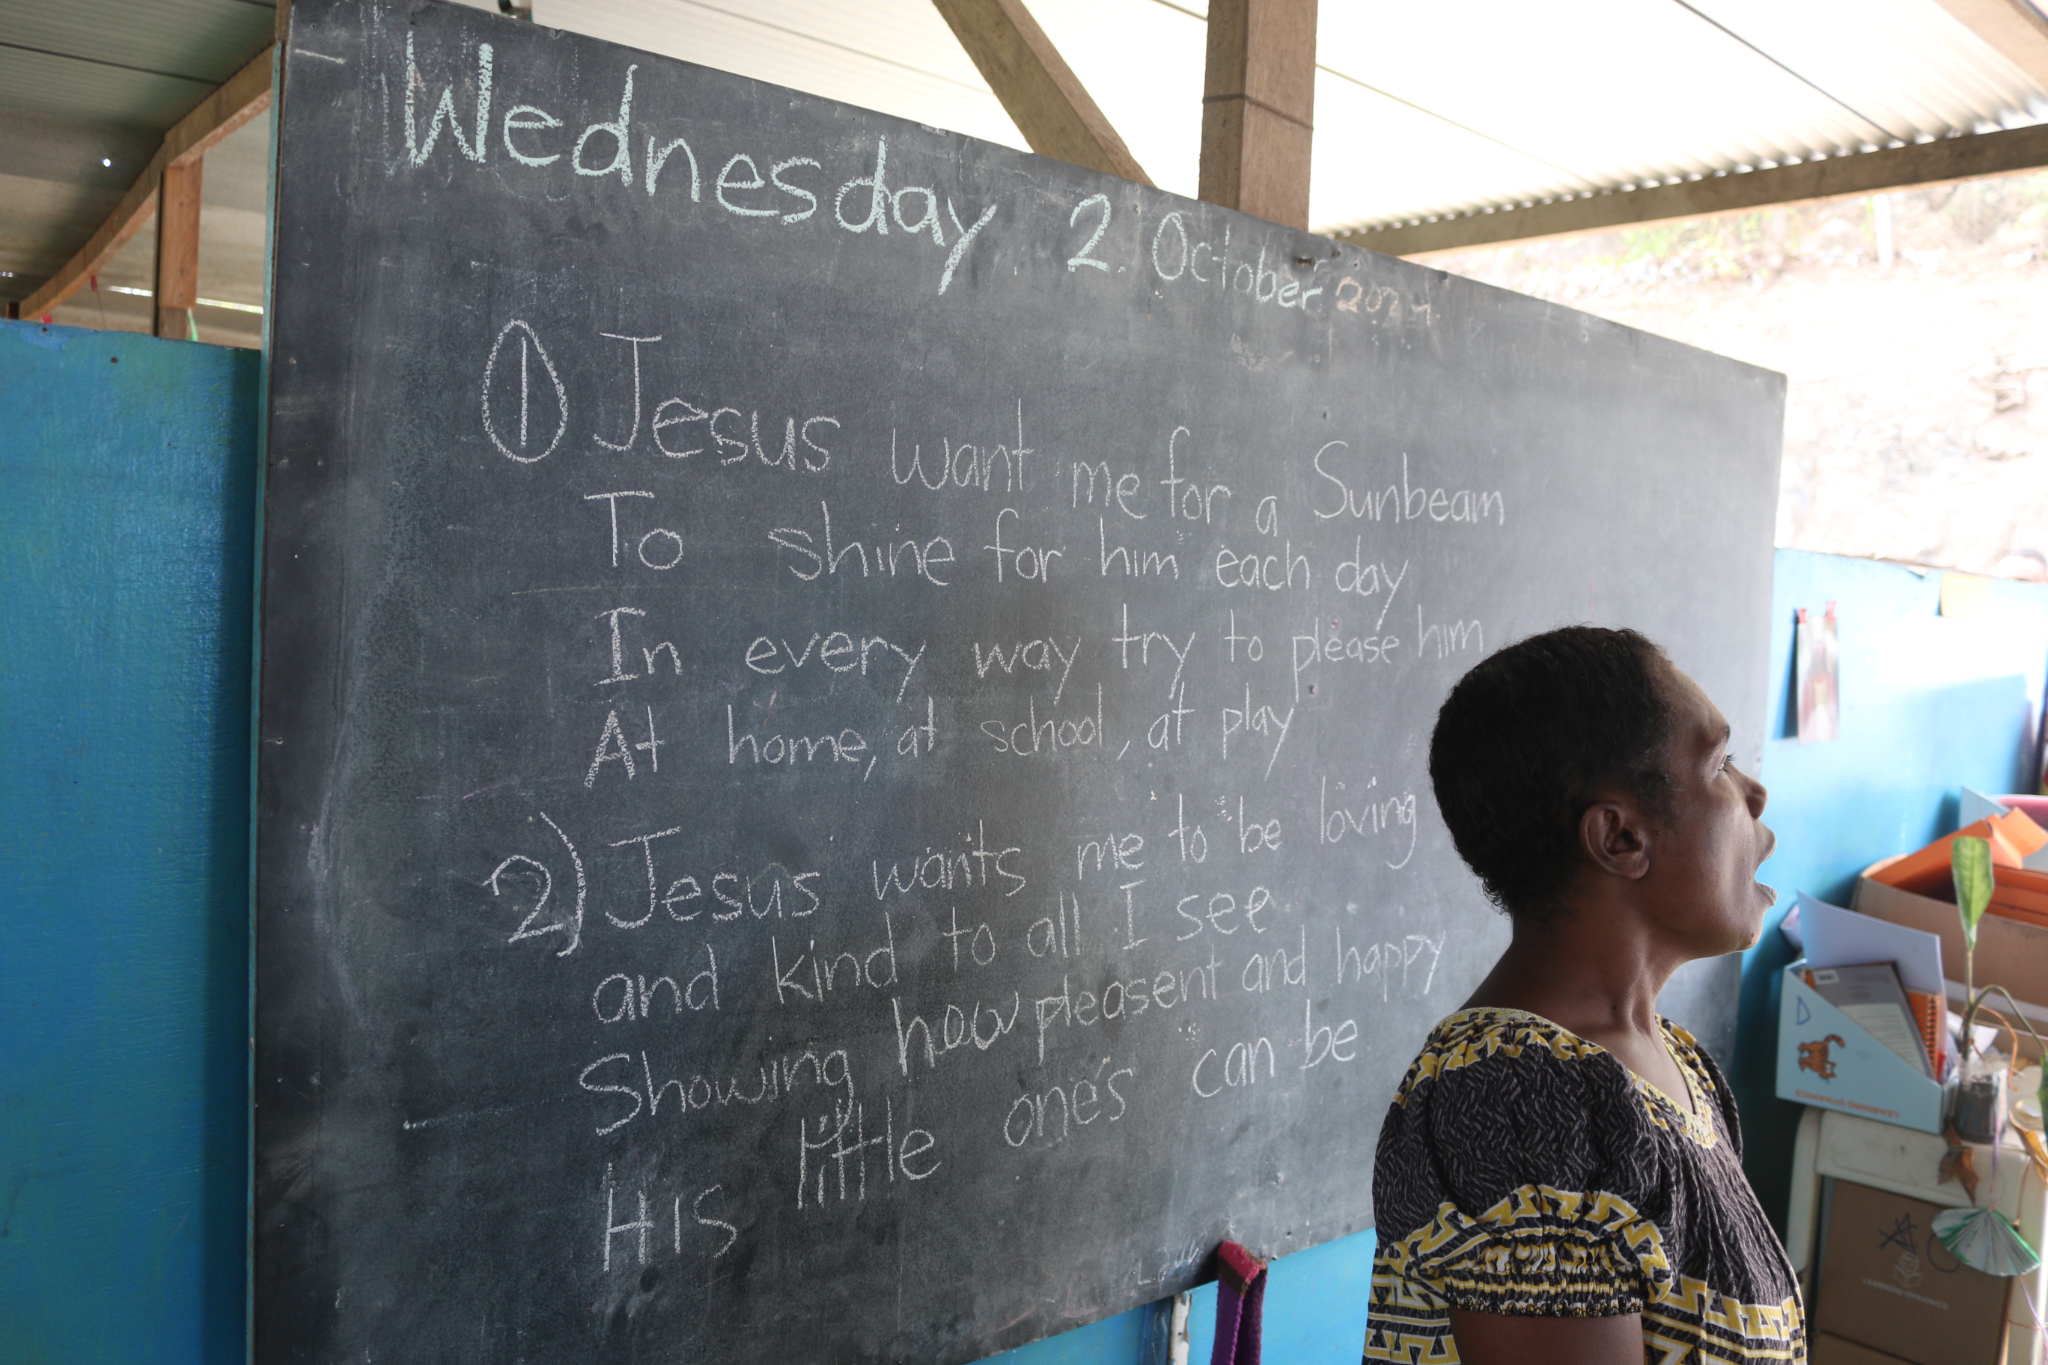 Wednesday 2 October 2024
① Jesus want me for a Sunbeam
To shine for him each day
In every way try to please him
At home, at school, at play
2) Jesus wants me to be loving
and kind to all I see
Showing how pleasent and happy
HIS little one's can be